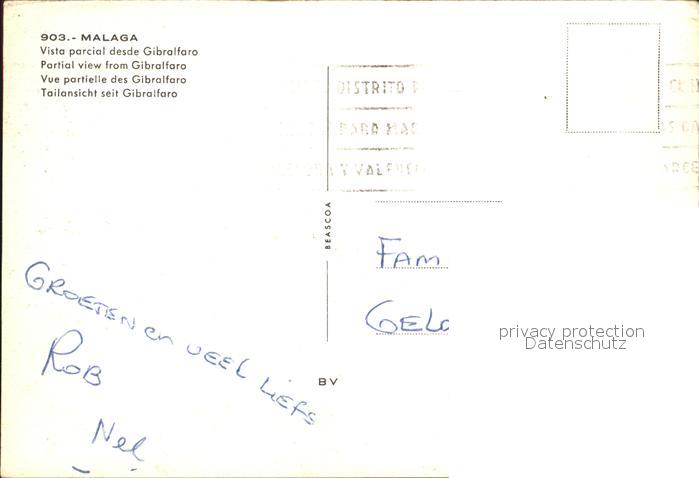 903.- MALAGA
Vista parcial desde Gibralfaro
Partial view from Gibralfaro
Vue partielle des Gibralfaro
Tailansicht seit Gibralfaro
DISTRITO
PARA
Y VALENCI
BEASCOA
FAM
GELD
GROETEN en VEEL LIEFS
ROB
Nel
BV
privacy protection
Datenschutz